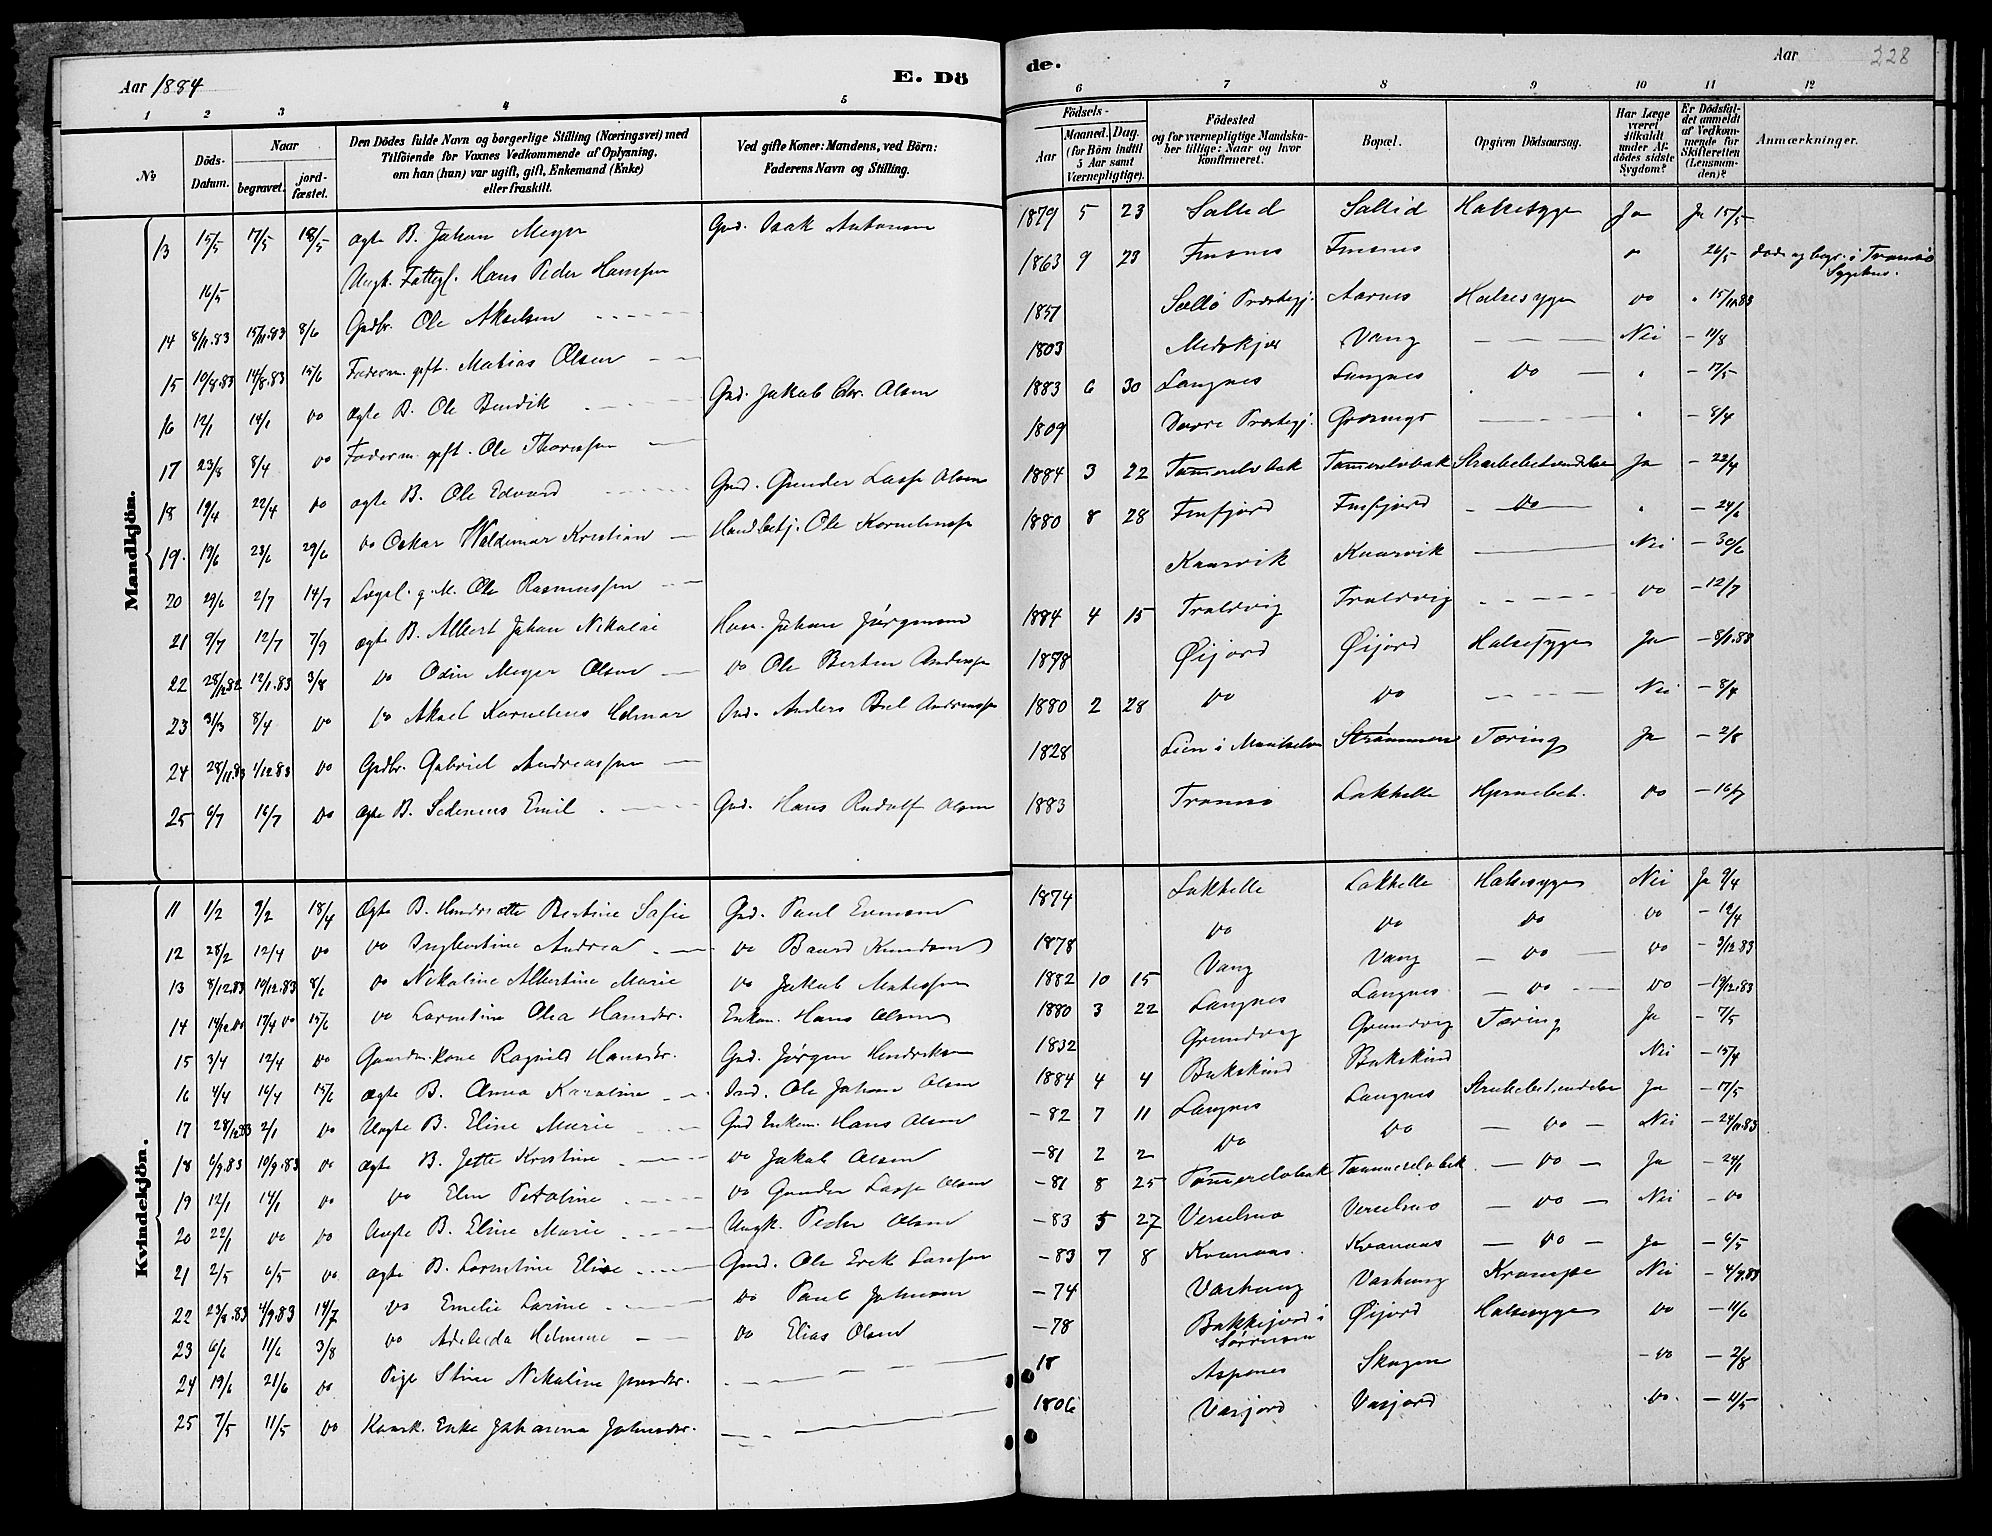 Aar 1884
E. Dö
1 2 3 4 5
Nº
Döds-Datum.
Naar
begravet. jordfæstet.
Den Dödes fulde Navn og borgerlige Stilling (Næringsvei) med Tilföiende for Voxnes Vedkommende af Oplysning, om han (hun) var ugift, gift, Enkemand (Enke) eller fraskilt.
Ved gifte Koner: Mandens, ved Börn: Faderens Navn og Stilling.
Mandkjön.
13 15/5 17/5 18/5 ægte B. Johan Meyer Grd. Isak Antonsen
16/5 Ungk. Fattigl. Hans Peder Hanssen
14 8/11.83 15/11.83 8/6 Grdbr. Ole Akselsen
15 10/8.83 14/8.83 15/6 Føderm. gift. Matias Olsen
16 12/1 14/1 do ægte B. Ole Bendik Grd. Jakob Chr. Olsen
17 23/3 8/4 do Føderm. gift. Ole Thomassen
18 19/4 22/4 do ægte B. Ole Edvard Grd. Gunder Lasse Olsen
19. 19/6 23/6 29/6 do Oskar Waldemar Kristian Ole Korneliussen
20 29/6 2/7 14/7 Lægsl. g. M. Ole Rasmussen
21 9/7 12/7 7/9 ægte B. Albert Johan Nikolai Johan Jørgensen
22 28/12.82 12/1.83 3/8 do Odin Meyer Olsen do Ole Berten Andersen
23 31/3 8/4 do do Aksel Kornelius Helmar Anders
24 28/11.83 1/12.83 do Grdbr. Gabriel Andreassen
25 6/7 16/7 do ægte B. Sedenius Emil Grd. Hans Rudolf Olsen
Kvindekjön.
11 1/2 9/2 18/4 ægte B. Hendrikette Bertine Sofie Grd. Paul
12 28/2 12/4 do do Ingbertine Andrea do Baard Knudsen
13 8/12.83 10/12.83 8/6 do Nikoline Albertine Marie do Jakob Matissen
14 14/12.do 17/4 do 15/6 do Lorentine Olea Hansdtr. Enkem. Hans Olsen
15 3/4 12/4 do Gaardm.kone Ragnild Hansdtr. Grd. Jørgen Hendriksen
16 4/4 16/4 15/6 ægte B. Anna Karoline Ind. Ole Johan Olsen
17 28/12.83 2/1 do Uægte B. Eline Marie Grd Enkem. Hans Olsen
18 6/9.83 10/9.83 do ægte B. Jette Kristine do Jakob Olsen
19 12/1 14/1 do do Elen Petoline do Gunder Lasse Olsen
20 22/1 do do Uægte B. Eline Marie Ungk. Peder Olsen
21 2/5 6/5 do ægte B. Lorentine Elise Grd. Ole Erik Larssen
22 23/8.83 4/9.83 14/7 do Emelie Larine do Paul Johnsen
23 6/6 11/6 3/8 do Adeleida Helmine do Elias Olsen
24 19/6 21/6 do Pige Stine Nikoline
25 7/5 11/5 do Enke Johanna Johnsdtr.
de.
Aar
228
6 7 8 9 10 11 12
Födsels-
Aar
Maaned. Dag.
(for Börn indtil 5 Aar samt Værnepligtige).
Födested
og for værnepligtige Mandskaber tillige: Naar og hvor konfirmeret.
Bopæl.
Opgiven Dödsaarsag.
Har Læge været tilkaldt under Afdödes sidste Sygdom?
Er Dödsfaldet anmeldt af Vedkommende for Skifteretten (Lensmanden)?
Anmærkninger.
1879 5 23 Sultid Sultid Halsesyge Ja Ja 15/5
1863 9 23 Finsnes Finsnes 26/5 døde og begr. i Tromsø Sygehus.
1851 Præstegj. Aarnes Halsesyge do 15/11.83
1803 Medskjær Vang Nei 11/8
1883 6 30 Langnes Langnes do 17/5
1809 Dovre Præstegj. 8/4
1884 3 22 Tommerelvbak Tommerelvbak Strubebetændelse Ja 22/4
1880 8 28 Finfjord Finfjord do 24/6
Kaarvik Kaarvik Nei 30/6
1884 4 15 Troldvig Troldvig do 12/7
1878 Øijord Øijord Halsesyge Ja 8/1.83
1880 2 28 do do Nei 8/4
1828 Lien i Maalselven Strømmen Tæring Ja 2/8
1883 Tromsø Lakhelle Hjernebet. do 16/7
1874 Lakhelle Lakhelle Halsesyge Nei Ja 9/4
1878 do do do do 12/4
1882 10 15 Vang Vang do do 9/12.83
1880 3 22 Langnes Langnes do do 19/12.83
1832 Grundvig Grundvig Tæring Ja 7/5
1884 4 4 Bukskind Bukskind Nei 15/4
82 7 11 Langnes Langnes Strubebetændelse Ja 17/5
81 2 2 do do do Nei 24/11.83
81 8 25 Tommerelvbak Tommerelvbak do Ja 24/1
83 5 27 Verselmo Verselmo do Nei do
83 7 8 Kvanaas. Kvanaas do Ja 6/5
74 Vashaug Vashaug Krampe Nei 4/9.83
78 Bakkejord i Sørreisen Øijord Halsesyge do 11/6
18 Aspenes Skogen do 2/8
1806 Vasjord Vasjord do. 11/5